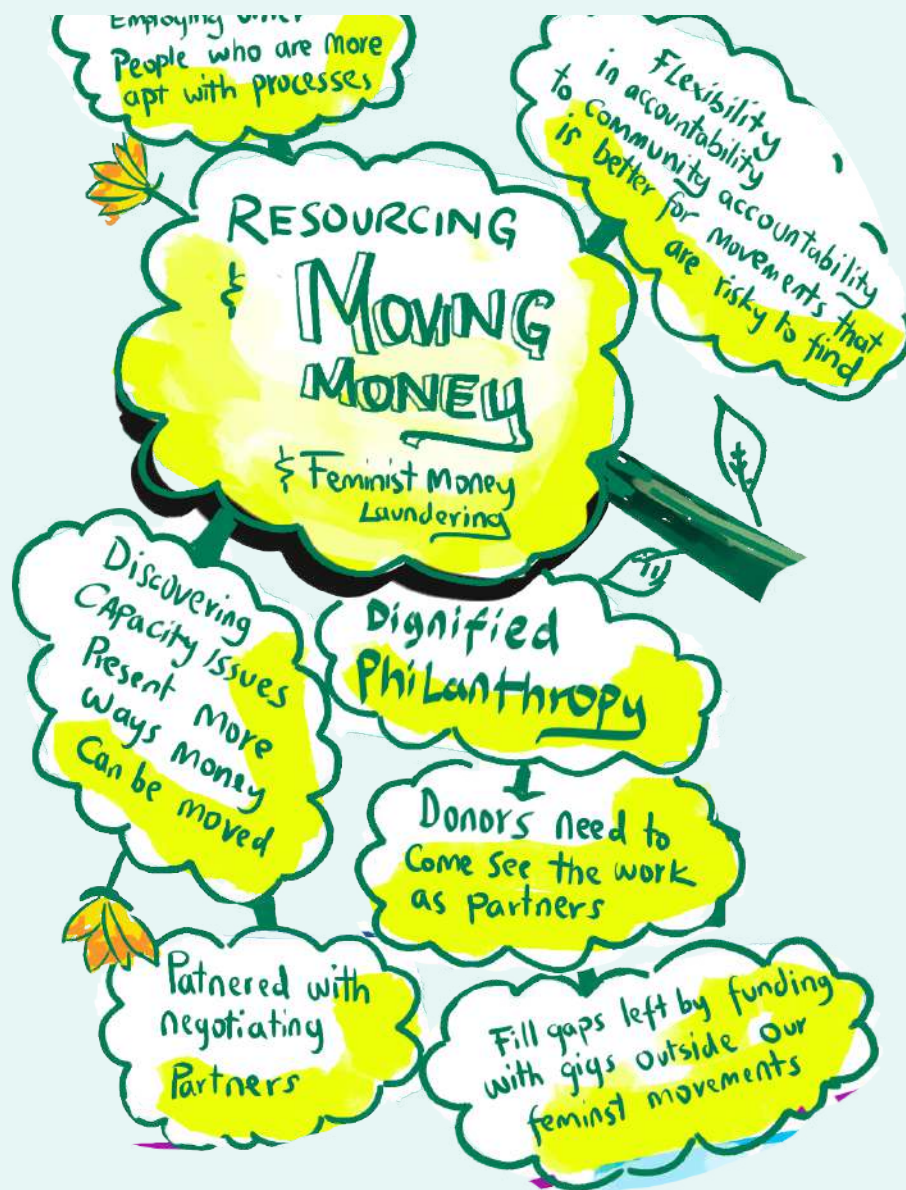 Employing other
People who are more
apt with processes
Flexibility
in accountability
to community accountability
is better for movements that
are risky to find
RESOURCING
& MOVING
MONEY
& Feminist Money
Laundering
Discovering
CAPACITY ISSUES
Present more
ways money
Can be moved
Dignified
PhiLanthropy
Donors need to
Come see the work
as partners
Patnered with
negotiating
Partners
Fill gaps left by funding
with gigs outside our
feminst movements